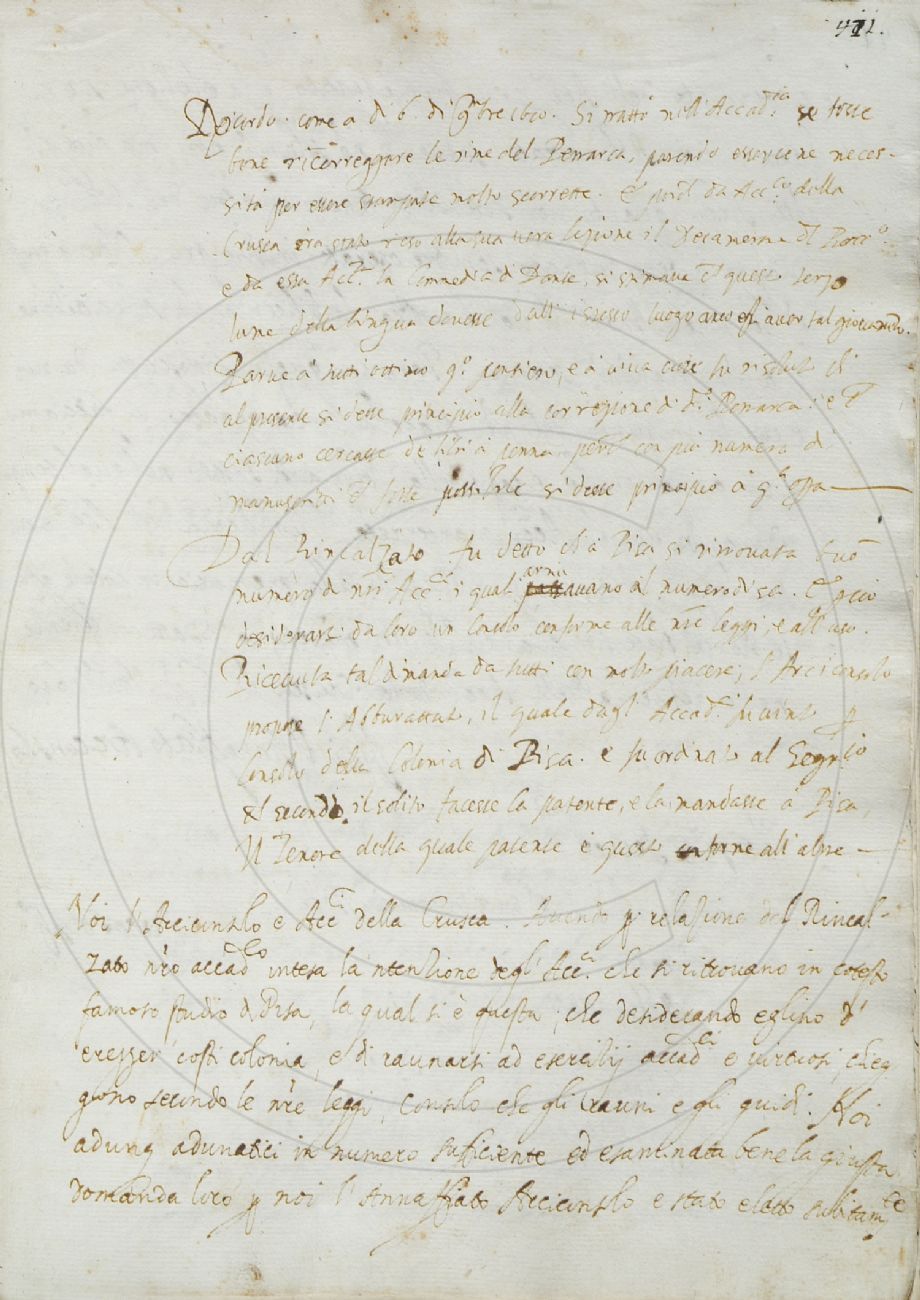 411.
Ricordo come a dì 6. di 9mbre 1600. Si trattò nell'Accad.ia se fosse
bene ricorreggere le rime del Petrarca, parendo esservene neces-
sità per essere stampate molto scorrette. E perch da Acc.ci della
Crusca era stato reso alla sua vera lezione il Decamerone del Bocc.o
e da essa Acc.a la Commedia di Dante, si stimava ch questo terzo
lume della lingua dovesse dall'istesso luogo anco ess aver tal giovamento.
Parve a tutti ottimo q.o pensiero, e a viva voce fu risoluto ch
al presente si desse principio alla correzione di d.o Petrarca: e ch
ciascuno cercasse de libri a penna perch con più numero di
manuscritti ch fosse possibile si desse principio a q.a opa
Dal Rincalzato fu detto ch a Pisa si ritrovava buon
numero di nri Acc.ci i quali arrivavano al numero di 12. e perciò
desiderarsi da loro un Consolo conforme alle nre leggi, e all'uso.
Ricevuta tal dimanda da tutti con molto piacere, l'Arciconsolo
propose l'Abburattato, il quale dagl'Accad.ci fu vinto p
Consolo della Colonia di Pisa. e fu ordinato al Segr.io
ch secondo il solito facesse la patente, e la mandasse a Pisa,
Il Tenore della quale patente è questo conforme all'altre
Noi l'Arciconsolo e Acc.ci della Crusca. Avendo p relazione del Rincal-
zato n'ro accad.co intesa la 'ntenzione degl'Acc.ci che si ritrovano in cotesto
famoso studio di Pisa, la qual si è questa, che desiderando eglino d'
eresser' costì colonia, e di raunarsi ad esercitij accad.ci e virtuosi, cheg
giono secondo le n're leggi, Consolo che gli rauni e gli guidi. Noi
adunq adunatici in numero sufficiente ed esaminata bene la giusta
domanda loro p noi l'Annaffiato Arciconsolo è stato eletto subitam.te